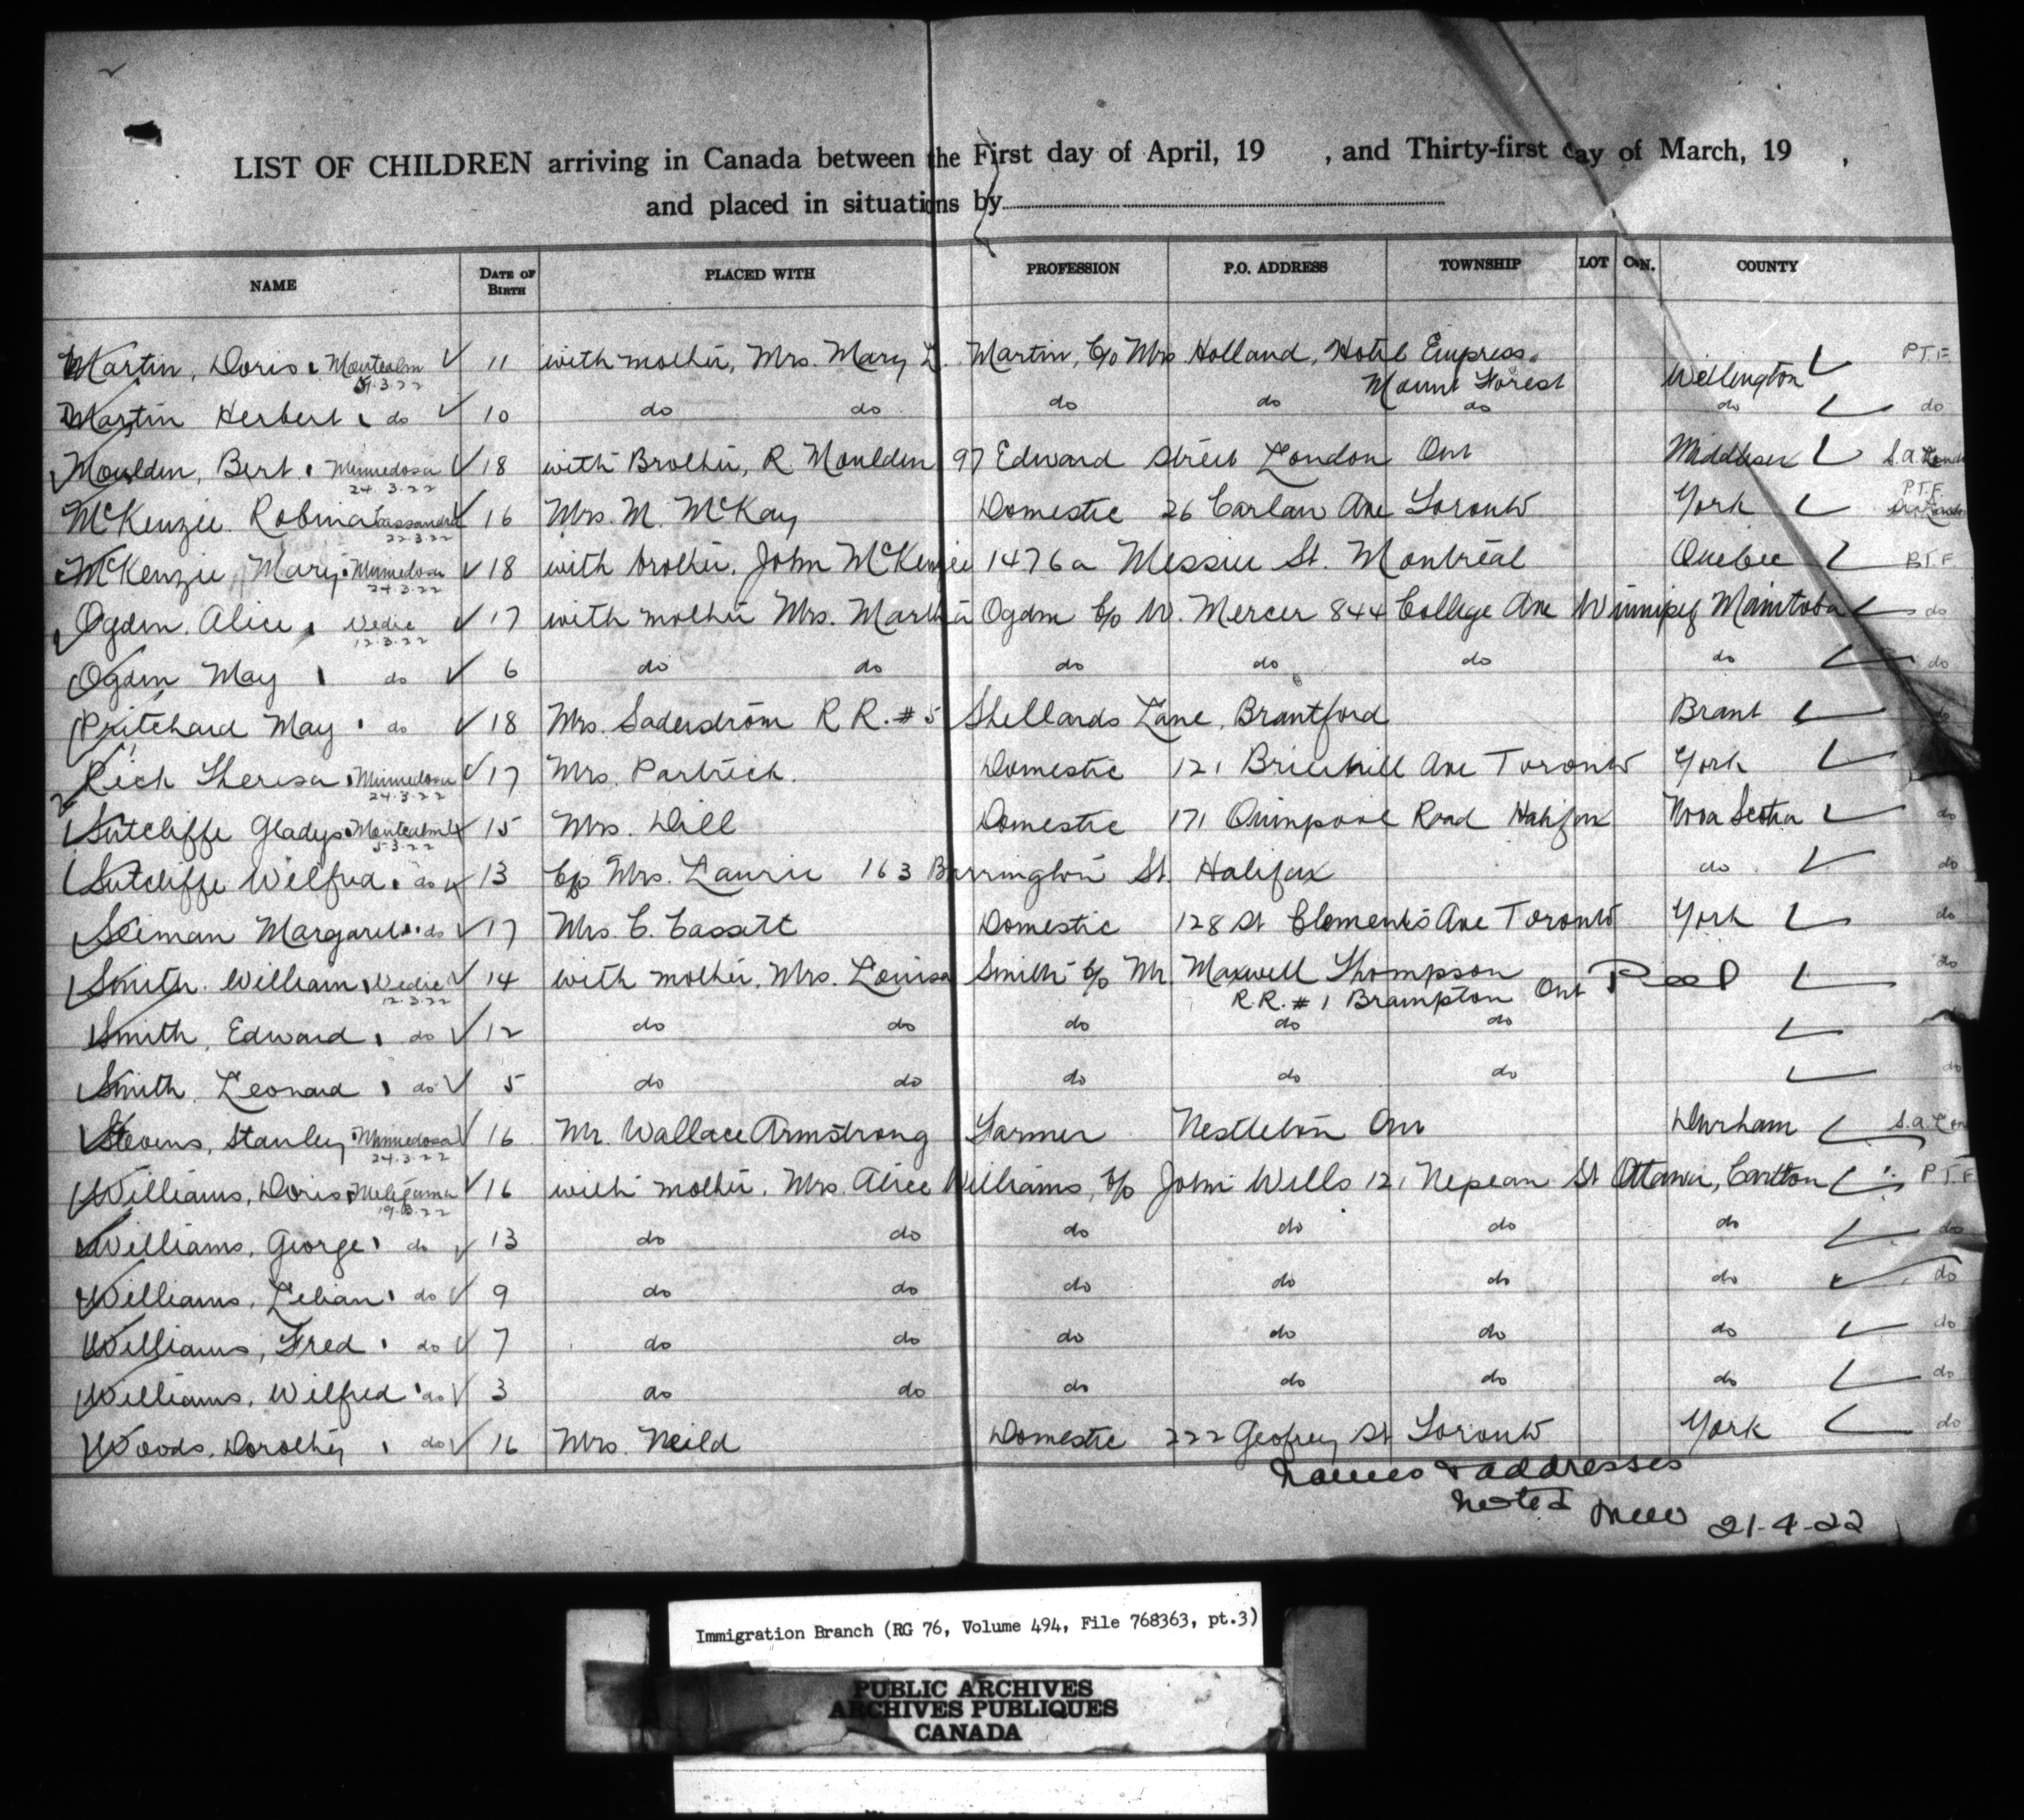 LIST OF CHILDREN arriving in Canada between the First day of April, 19 , and Thirty-first day of March, 19 ,
and placed in situations by
NAME DATE OF BIRTH PLACED WITH PROFESSION P.O. ADDRESS TOWNSHIP LOT CON. COUNTY
Martin, Doris Montcalm 11 with mother, Mrs. Mary L. Martin, c/o Mrs Holland, Hotel Empress. P.T.F
.3.22 Mount Forest Wellington
Martin Herbert do 10 do do do do do do do
Moulden, Bert. Minnedosa 18 with Brother, R Moulden 97 Edward Street London Ont Middlesex S.A. Lond
24.3.22
McKenzie Robina Cassandra 16 Mrs. M. McKay Domestic 26 Carlan Ave Toronto York P.T.F.
22.3.22
McKenzie Mary Minnedosa 18 with brother, John McKenzie 1476a Messier St. Montreal Quebec P.T.F
24.3.22
Ogden. Alice Vedic 17 with mother Mrs. Martha Ogden c/o W. Mercer 844 College Ave Winnipeg Manitoba do
12.3.22
Ogden May do 6 do do do do do do do
Pritchard May do 18 Mrs. Saderstrom R R. # 5 Shellards Lane, Brantford Brant do
Rich Theresa Minnedosa 17 Mrs. Partrick. Domestic 121 Briarhill Ave Toronto York
24.3.22
Sutcliffe Gladys Montcalm 15 Mrs. Dill Domestic 171 Quinpool Road Halifax Nova Scotia do
5.3.22
Sutcliffe Wilfred do 13 c/o Mrs. Laurie 163 Barrington St. Halifax do do
Seiman Margaret do 17 Mrs. C. Cassatt Domestic 128 St Clements Ave Toronto York do
Smith. William Vedic 14 with mother, Mrs. Louisa Smith c/o Mr Maxwell Thompson Peel do
12.3.22 R.R. # 1 Brampton Ont
Smith, Edward do 12 do do do do do
Smith, Leonard do 5 do do do do do do
Stevens, Stanley Minnedosa 16 Mr. Wallace Armstrong Farmer Nestleton Ont Durham S.A. Lon
24.3.22
Williams, Doris Metagama 16 with mother, Mrs. Alice Williams, c/o John Wells 121 Nepean St Ottawa, Carlton P.T.F
19.3.22
Williams, George do 13 do do do do do do do
Williams, Lilian do 9 do do do do do do do
Williams, Fred do 7 do do do do do do do
Williams, Wilfred do 3 do do do do do do do
Woods, Dorothy do 16 Mrs. Neild Domestic 222 Geofrey St Toronto York do
Names & addresses
noted 21-4-22
Immigration Branch (RG 76, Volume 494, File 768363, pt.3)
PUBLIC ARCHIVES
ARCHIVES PUBLIQUES
CANADA